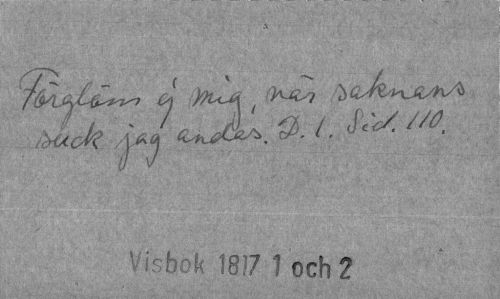 Förgläm ej mig, när saknans
suck jag andas. D. 1. Sid. 110.
Visbok 1817 1 och 2